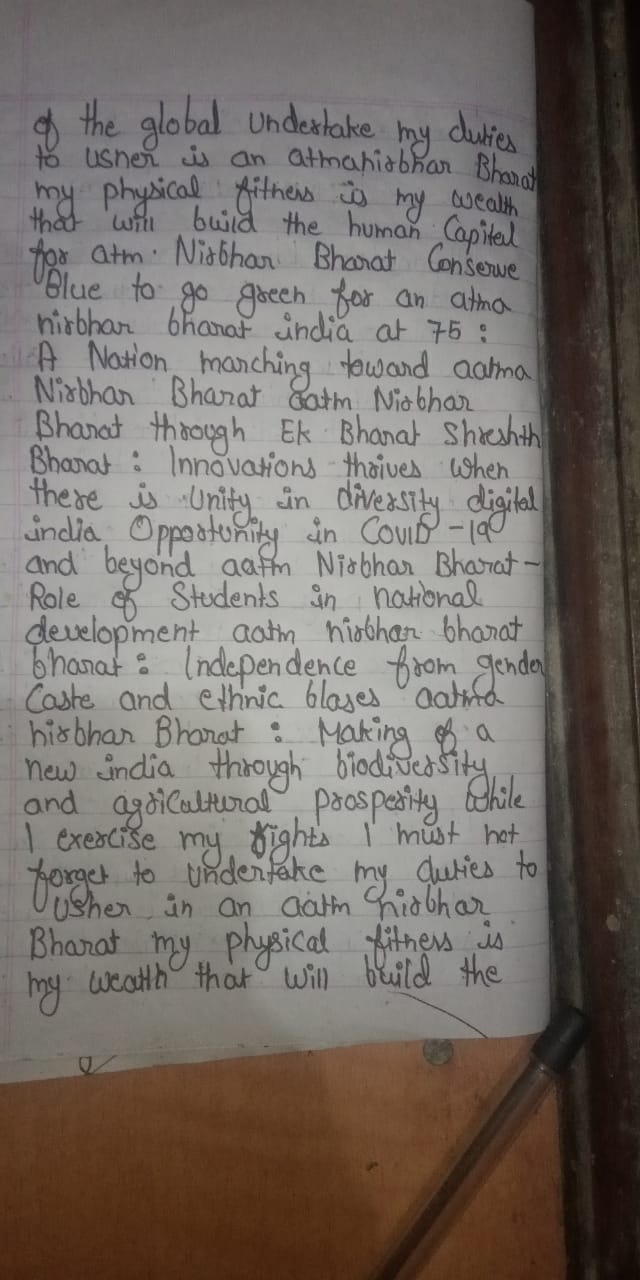 of the global undertake my duties
to usner is an atmanirbhar Bharat
my physical fitness is my wealth
that will build the human Capital
for atm. Nirbhar Bharat Conserve
Blue to go green for an atma
nirbhar bharat india at 75 :
A Nation marching toward aatma
Nirbhar Bharat aatm Nirbhar
Bharat through Ek Bharat Shreshth
Bharat : Innovations thrives when
there is Unity in diversity digital
india Opportunity in COVID -19
and beyond aatm Nirbhar Bharat -
Role of Students in national
development aatm nirbhar bharat
bharat : Independence from gender
Caste and ethnic blases aatma
nirbhar Bharat : Making of a
new india through biodiversity
and agricultural prosperity While
I exercise my rights I must not
forget to undertake my duties to
usher in an aatm nirbhar
Bharat my physical fitness is
my wealth that will build the